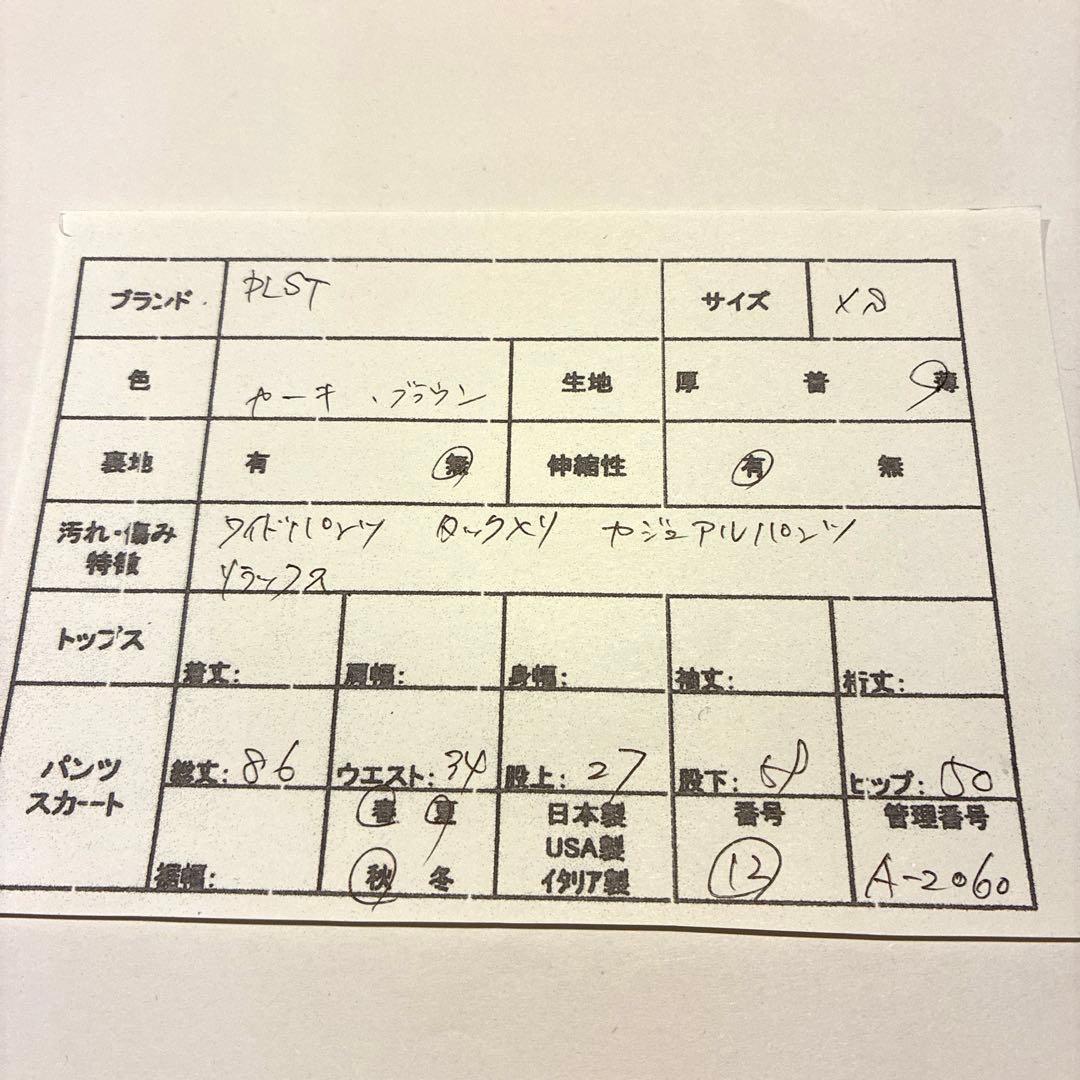 ブランド PLST サイズ XS
色 カーキ・ブラウン 生地 厚 普 薄
裏地 有 無 伸縮性 有 無
汚れ・傷み ワイドパンツ タック入り カジュアルパンツ
特徴 リラックス
トップス 着丈: 肩幅: 身幅: 袖丈: 裄丈:
パンツ スカート 総丈:86 ウエスト:34 股上:27 股下: ヒップ:50
裾幅: 春 夏 秋 冬 日本製 USA製 イタリア製 番号 12 管理番号 A-2060